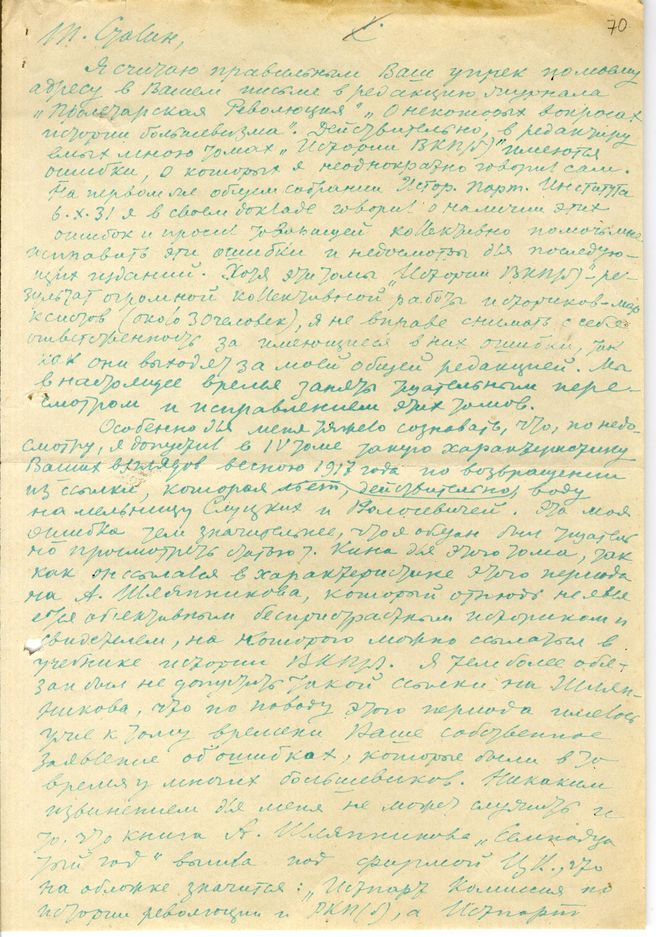 70
Т. Сталин,
Я считаю правильным Ваш упрек по моему
адресу в Вашем письме в редакцию журнала
„Пролетарская Революция" „О некоторых вопросах
истории большевизма". Действительно, в редактиру
емых мною томах „Истории ВКП(б)" имеются
ошибки, о которых я неоднократно говорил сам.
На первом же общем собрании Истор. Парт. Института
6.X.31 я в своем докладе говорил о наличии этих
ошибок и просил товарищей коллективно помочь мне
исправить эти ошибки и недосмотры для последую-
щих изданий. Хотя эти томы „Истории ВКП(б)"-ре-
зультат огромной коллективной работы историков-мар
ксистов (около 30 человек), я не вправе снимать с себя
ответственность за имеющиеся в них ошибки, так
как они выходят за моей общей редакцией. Мы
в настоящее время заняты тщательным пере-
смотром и исправлением этих томов.
Особенно для меня тяжело сознавать, что, по недо-
смотру, я допустил в IV томе такую характеристику
Ваших взглядов весною 1917 года по возвращении
из ссылки, которая льет, действительно, воду
на мельницу Слуцких и Волосевичей. Эта моя
ошибка тем значительнее, что я обязан был тщатель
но просмотреть статью т. Кина для этого тома, так
как он ссылался в характеристике этого периода
на А. Шляпникова, который отнюдь не явля
ется объективным беспристрастным историком и
свидетелем, на которого можно ссылаться в
учебнике истории ВКП(б). Я тем более обя-
зан был не допустить такой ссылки на Шляп-
никова, что по поводу этого периода имелось
уже к тому времени Ваше собственное
заявление об ошибках, которые были в то
время у многих большевиков. Никаким
извинением для меня не может служить и
то, что книга А. Шляпникова „Семнадца
тый год" вышла под фирмой ЦК., что
на обложке значится: „Истпарт Комиссия по
истории революции и РКП(б), а Истпарт